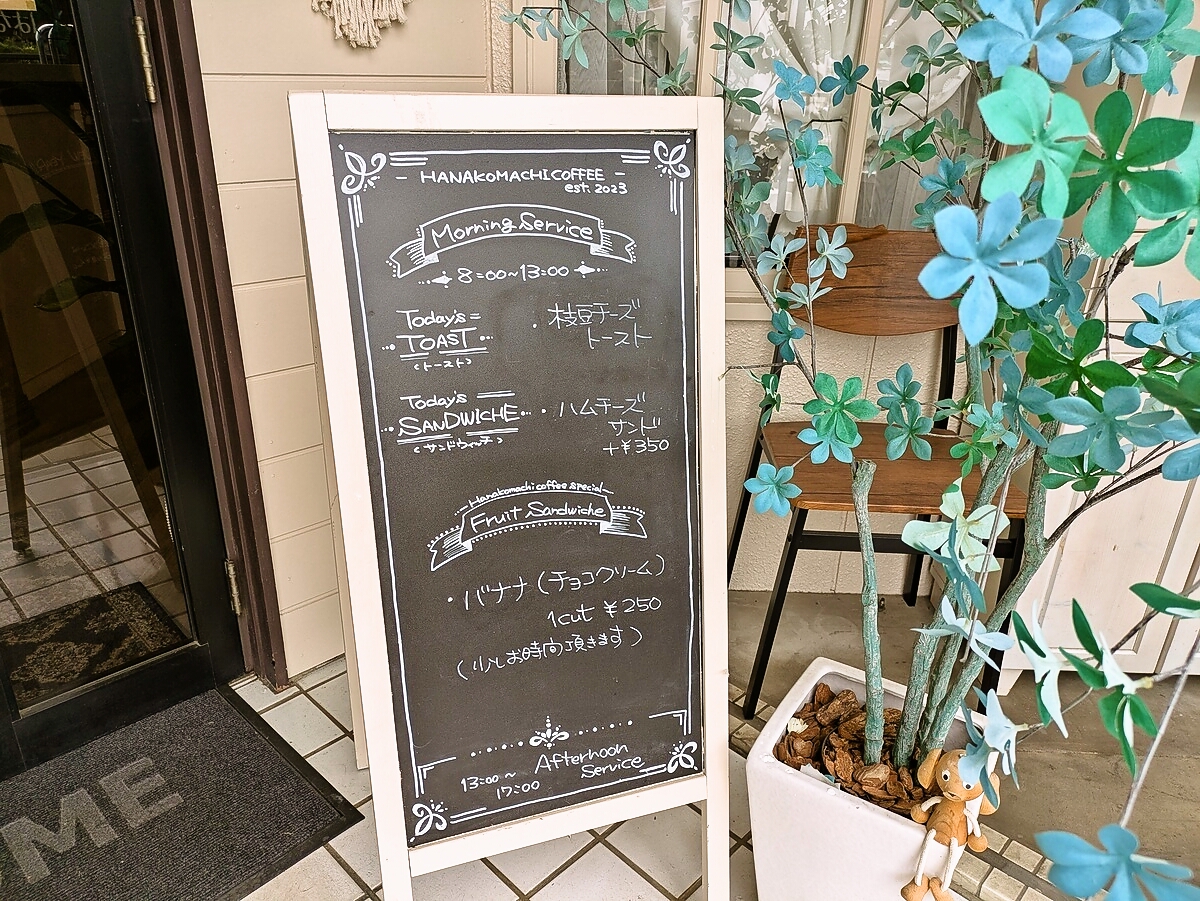 - HANAKOMACHI COFFEE -
est. 2023
Morning Service
8:00~13:00
Today's
TOAST
(トースト)
・枝豆チーズ
トースト
Today's
SANDWICHE
(サンドウィッチ)
・ハムチーズ
サンド
+¥350
Hanakomachi coffee special
Fruit Sandwiche
・バナナ(チョコクリーム)
1cut ¥250
(少しお時間頂きます)
Afternoon
Service
13:00~
17:00
ME